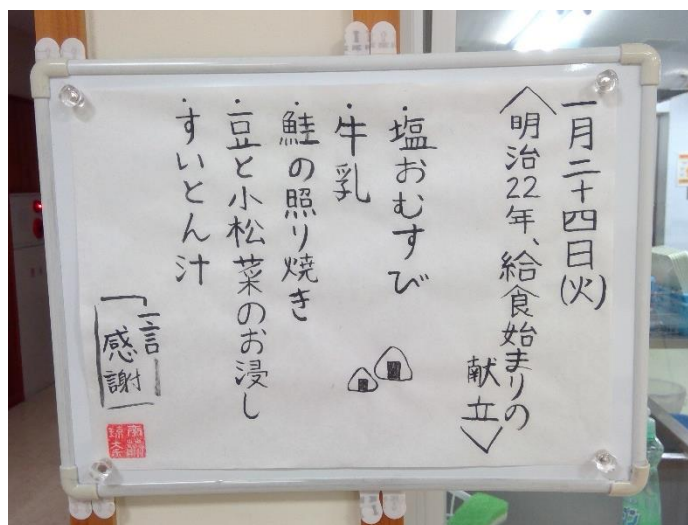 一月二十四日(火)
〈明治22年、給食始まりの
献立〉
・塩おむすび
・牛乳
・鮭の照り焼き
・豆と小松菜のお浸し
・すいとん汁
一言
感謝